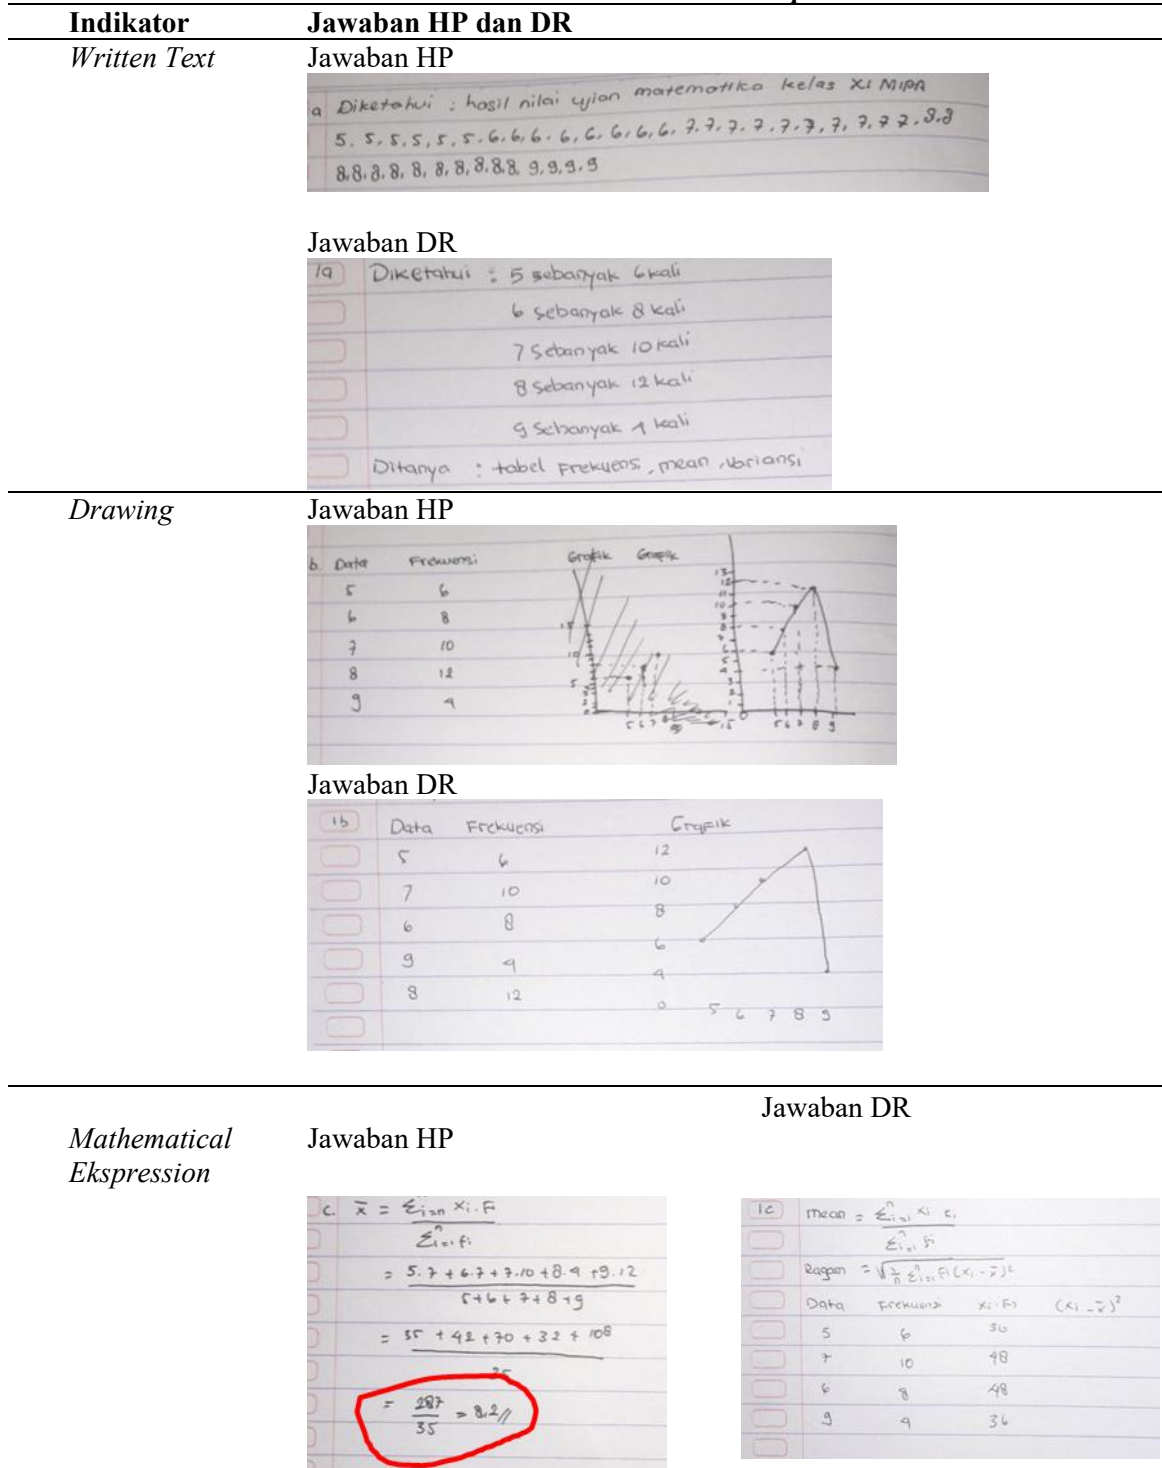 Indikator Jawaban HP dan DR
Written Text Jawaban HP
a Diketahui : hasil nilai ujian matematika kelas XI MIPA
5. 5. 5. 5, 5, 5. 6. 6, 6. 6, 6. 6, 6, 6. 7. 7. 7. 7. 7. 7, 7, 7. 7 7. 8. 8
8. 8. 8. 8, 8, 8, 8, 8. 8. 8, 9, 9, 9. 9
Jawaban DR
1a Diketahui : 5 sebanyak 6 kali
6 sebanyak 8 kali
7 sebanyak 10 kali
8 sebanyak 12 kali
9 sebanyak 4 kali
Ditanya : tabel Frekuensi, mean, variansi
Drawing Jawaban HP
b. Data Frekuensi Grafik Grafik
5 6
6 8
7 10
8 12
9 4
Jawaban DR
1b Data Frekuensi Grafik
5 6 12
7 10 10
6 8 8
9 4 6
8 12 4
0 5 6 7 8 9
Jawaban DR
Mathematical Jawaban HP
Ekspression
c. x̄ = Σi=n xi. F
Σⁿi=1 fi
= 5.7 + 6.7 + 7.10 + 8.4 + 9.12
5 + 6 + 7 + 8 + 9
= 35 + 42 + 70 + 32 + 108
35
= 287/35 = 8,2 //
1c mean = Σⁿi=1 xi fi
Σⁿi=1 fi
Ragam = √1/n Σⁿi=1 Fi (xi - x̄)²
Data Frekuensi xi. Fi (xi - x̄)²
5 6 30
7 10 48
6 8 48
9 4 36